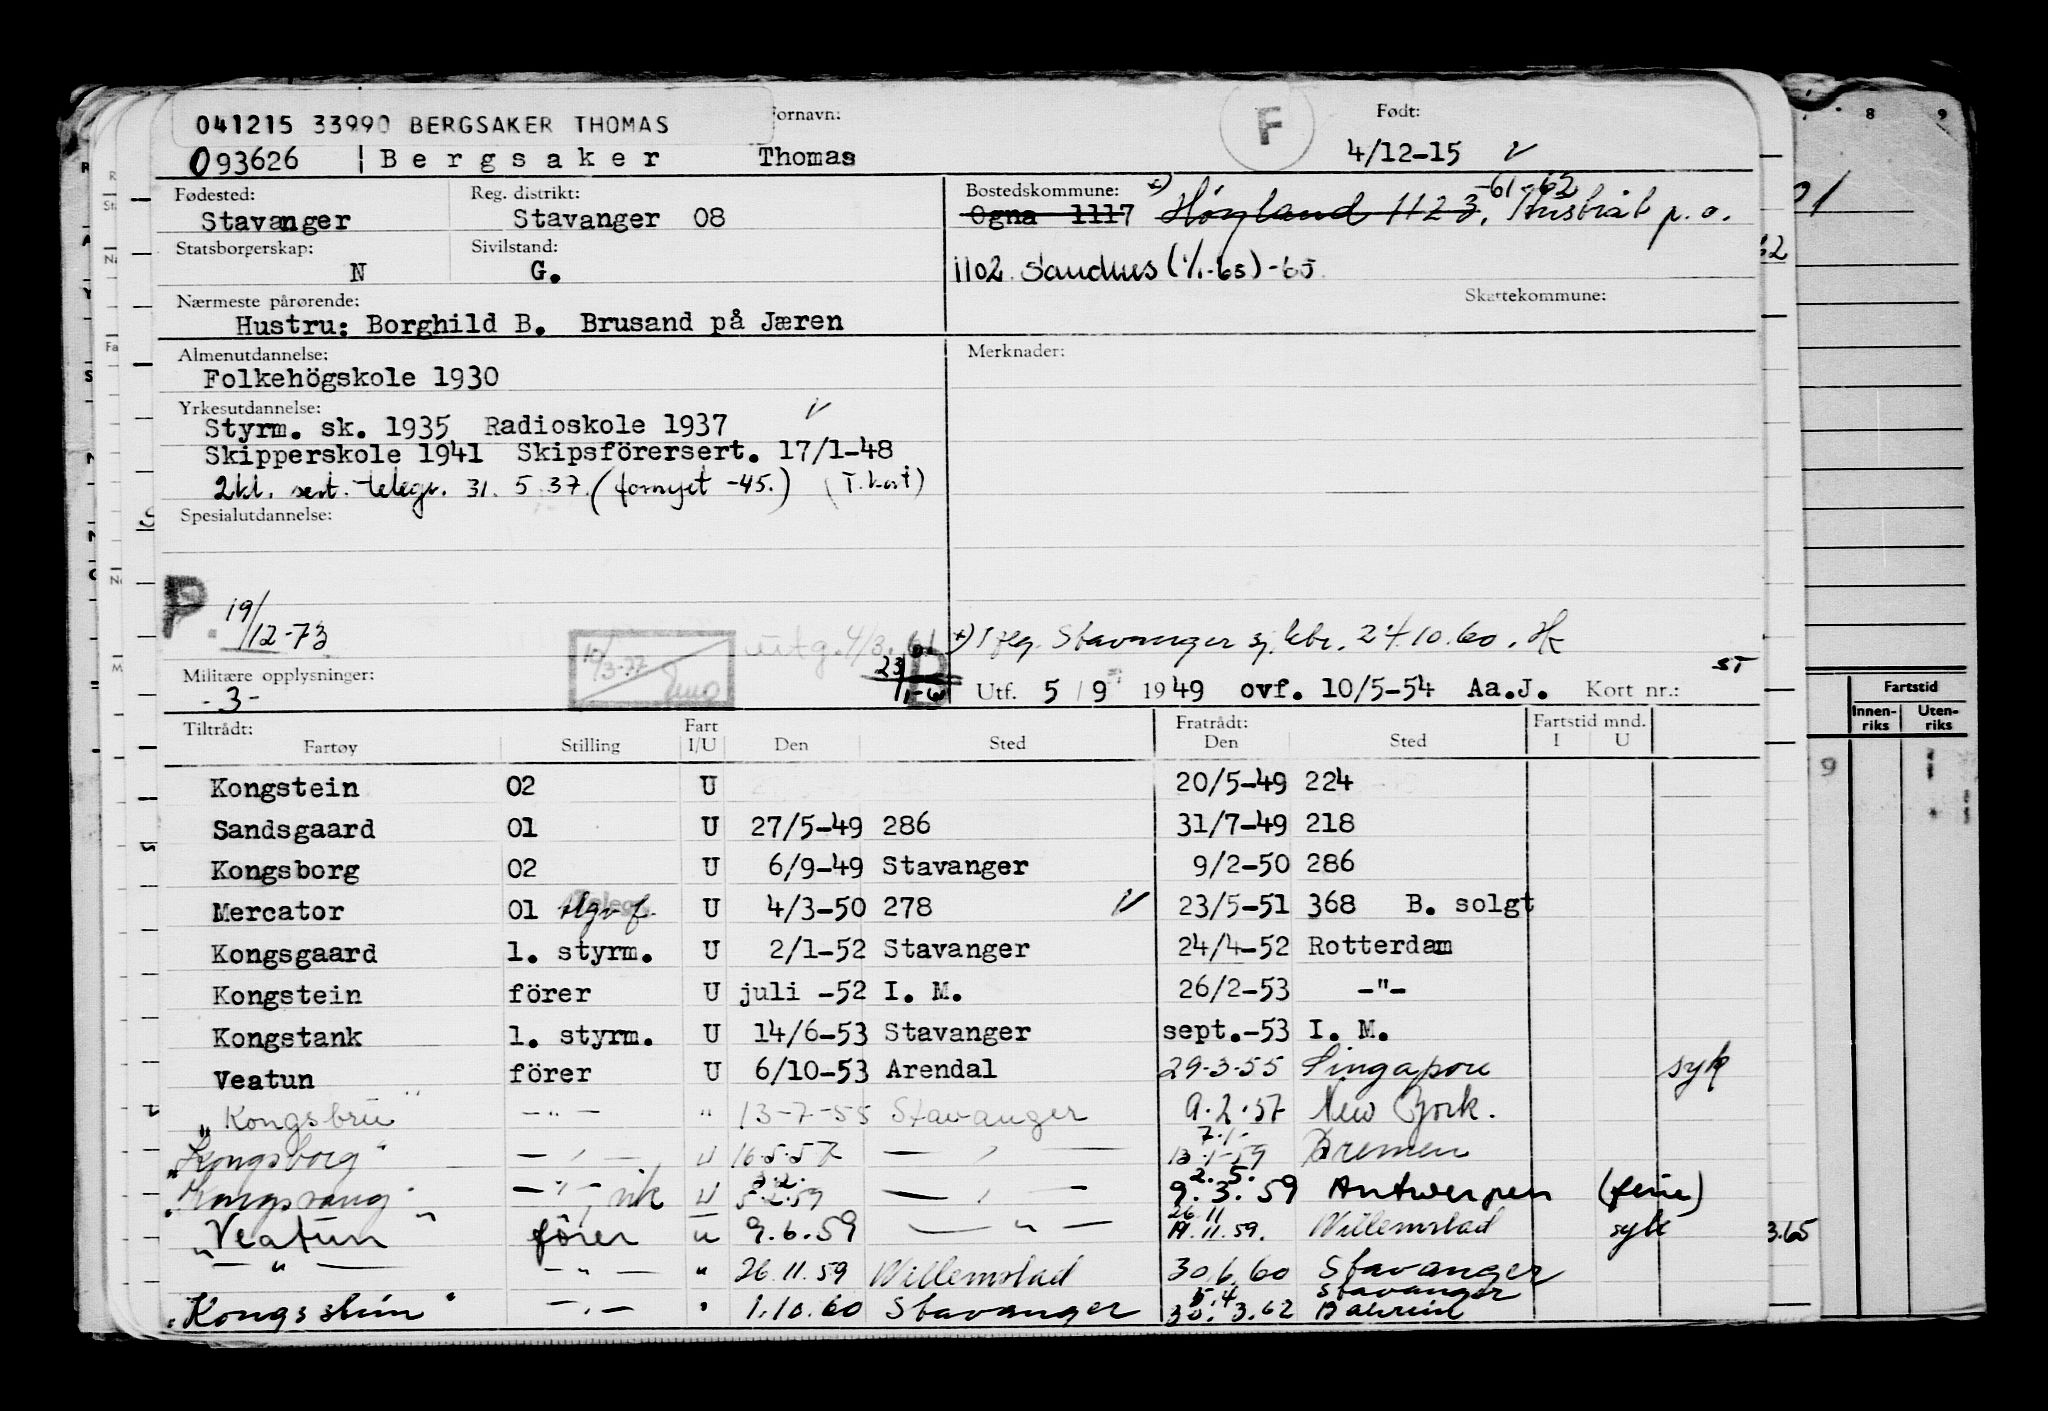 041215 33990 BERGSAKER THOMAS
Fornavn:
F
Født:
093626 Bergsaker Thomas 4/12-15 V
Fødested: Reg. distrikt: Bostedskommune:
Stavanger Stavanger 08 Ogna 1117 Høyland 1123, -61 -62 p.o.
Statsborgerskap: Sivilstand:
N G. 1102 Sandnes (1/1-65)-65
Nærmeste pårørende: Skattekommune:
Hustru: Borghild B. Brusand på Jæren
Almenutdannelse: Merknader:
Folkehögskole 1930
Yrkesutdannelse: V
Styrm. sk. 1935 Radioskole 1937
Skipperskole 1941 Skipsförersert. 17/1-48
2kl. sert. telegr. 31. 5. 37. (fornyet -45.) (T. kort)
Spesialutdannelse:
P.
19/12-73
10/3-77
utg. 4/3. 61
23/1-60
B
x) Iflg. Stavanger sj.ktr. 24.10.60. Hk
Militære opplysninger:
-3-
Utf. 5/9 1949 ovf. 10/5-54 Aa.J. Kort nr.: ST
Tiltrådt: Fart Fratrådt: Fartstid mnd.
Fartøy Stilling I/U Den Sted Den Sted I U
Kongstein 02 U 20/5-49 224
Sandsgaard 01 U 27/5-49 286 31/7-49 218
Kongsborg 02 U 6/9-49 Stavanger 9/2-50 286
Mercator 01 U 4/3-50 278 V 23/5-51 368 B. solgt
Kongsgaard 1. styrm. U 2/1-52 Stavanger 24/4-52 Rotterdam
Kongstein förer U juli -52 I. M. 26/2-53 -"-
Kongstank 1. styrm. U 14/6-53 Stavanger sept.-53 I. M.
Veatun förer U 6/10-53 Arendal 29-3-55 Singapore syk
"Kongsbru" -"- " 13-7-55 Stavanger 9.2.57 New York.
7.1.
"Kongsborg" -"- U 16.5.57 -"- 13.1.59 Bremen
3.2. 2.5.
"Kongsvang" -"-, vik U 5.2.59 -"- 9.3.59 Antwerpen (ferie)
26.11
"Veatun" fører u 9.6.59 -"- 19.11.59. Willemstad syk
-"- -"- " 26.11.59 Willemstad 30.6.60 Stavanger
5.4 Stavanger
"Kongsstein" -"- " 1.10.60 Stavanger 30.3.62 Bahrein
8 9
Fartstid
Innen-riks Uten-riks
9
3.65